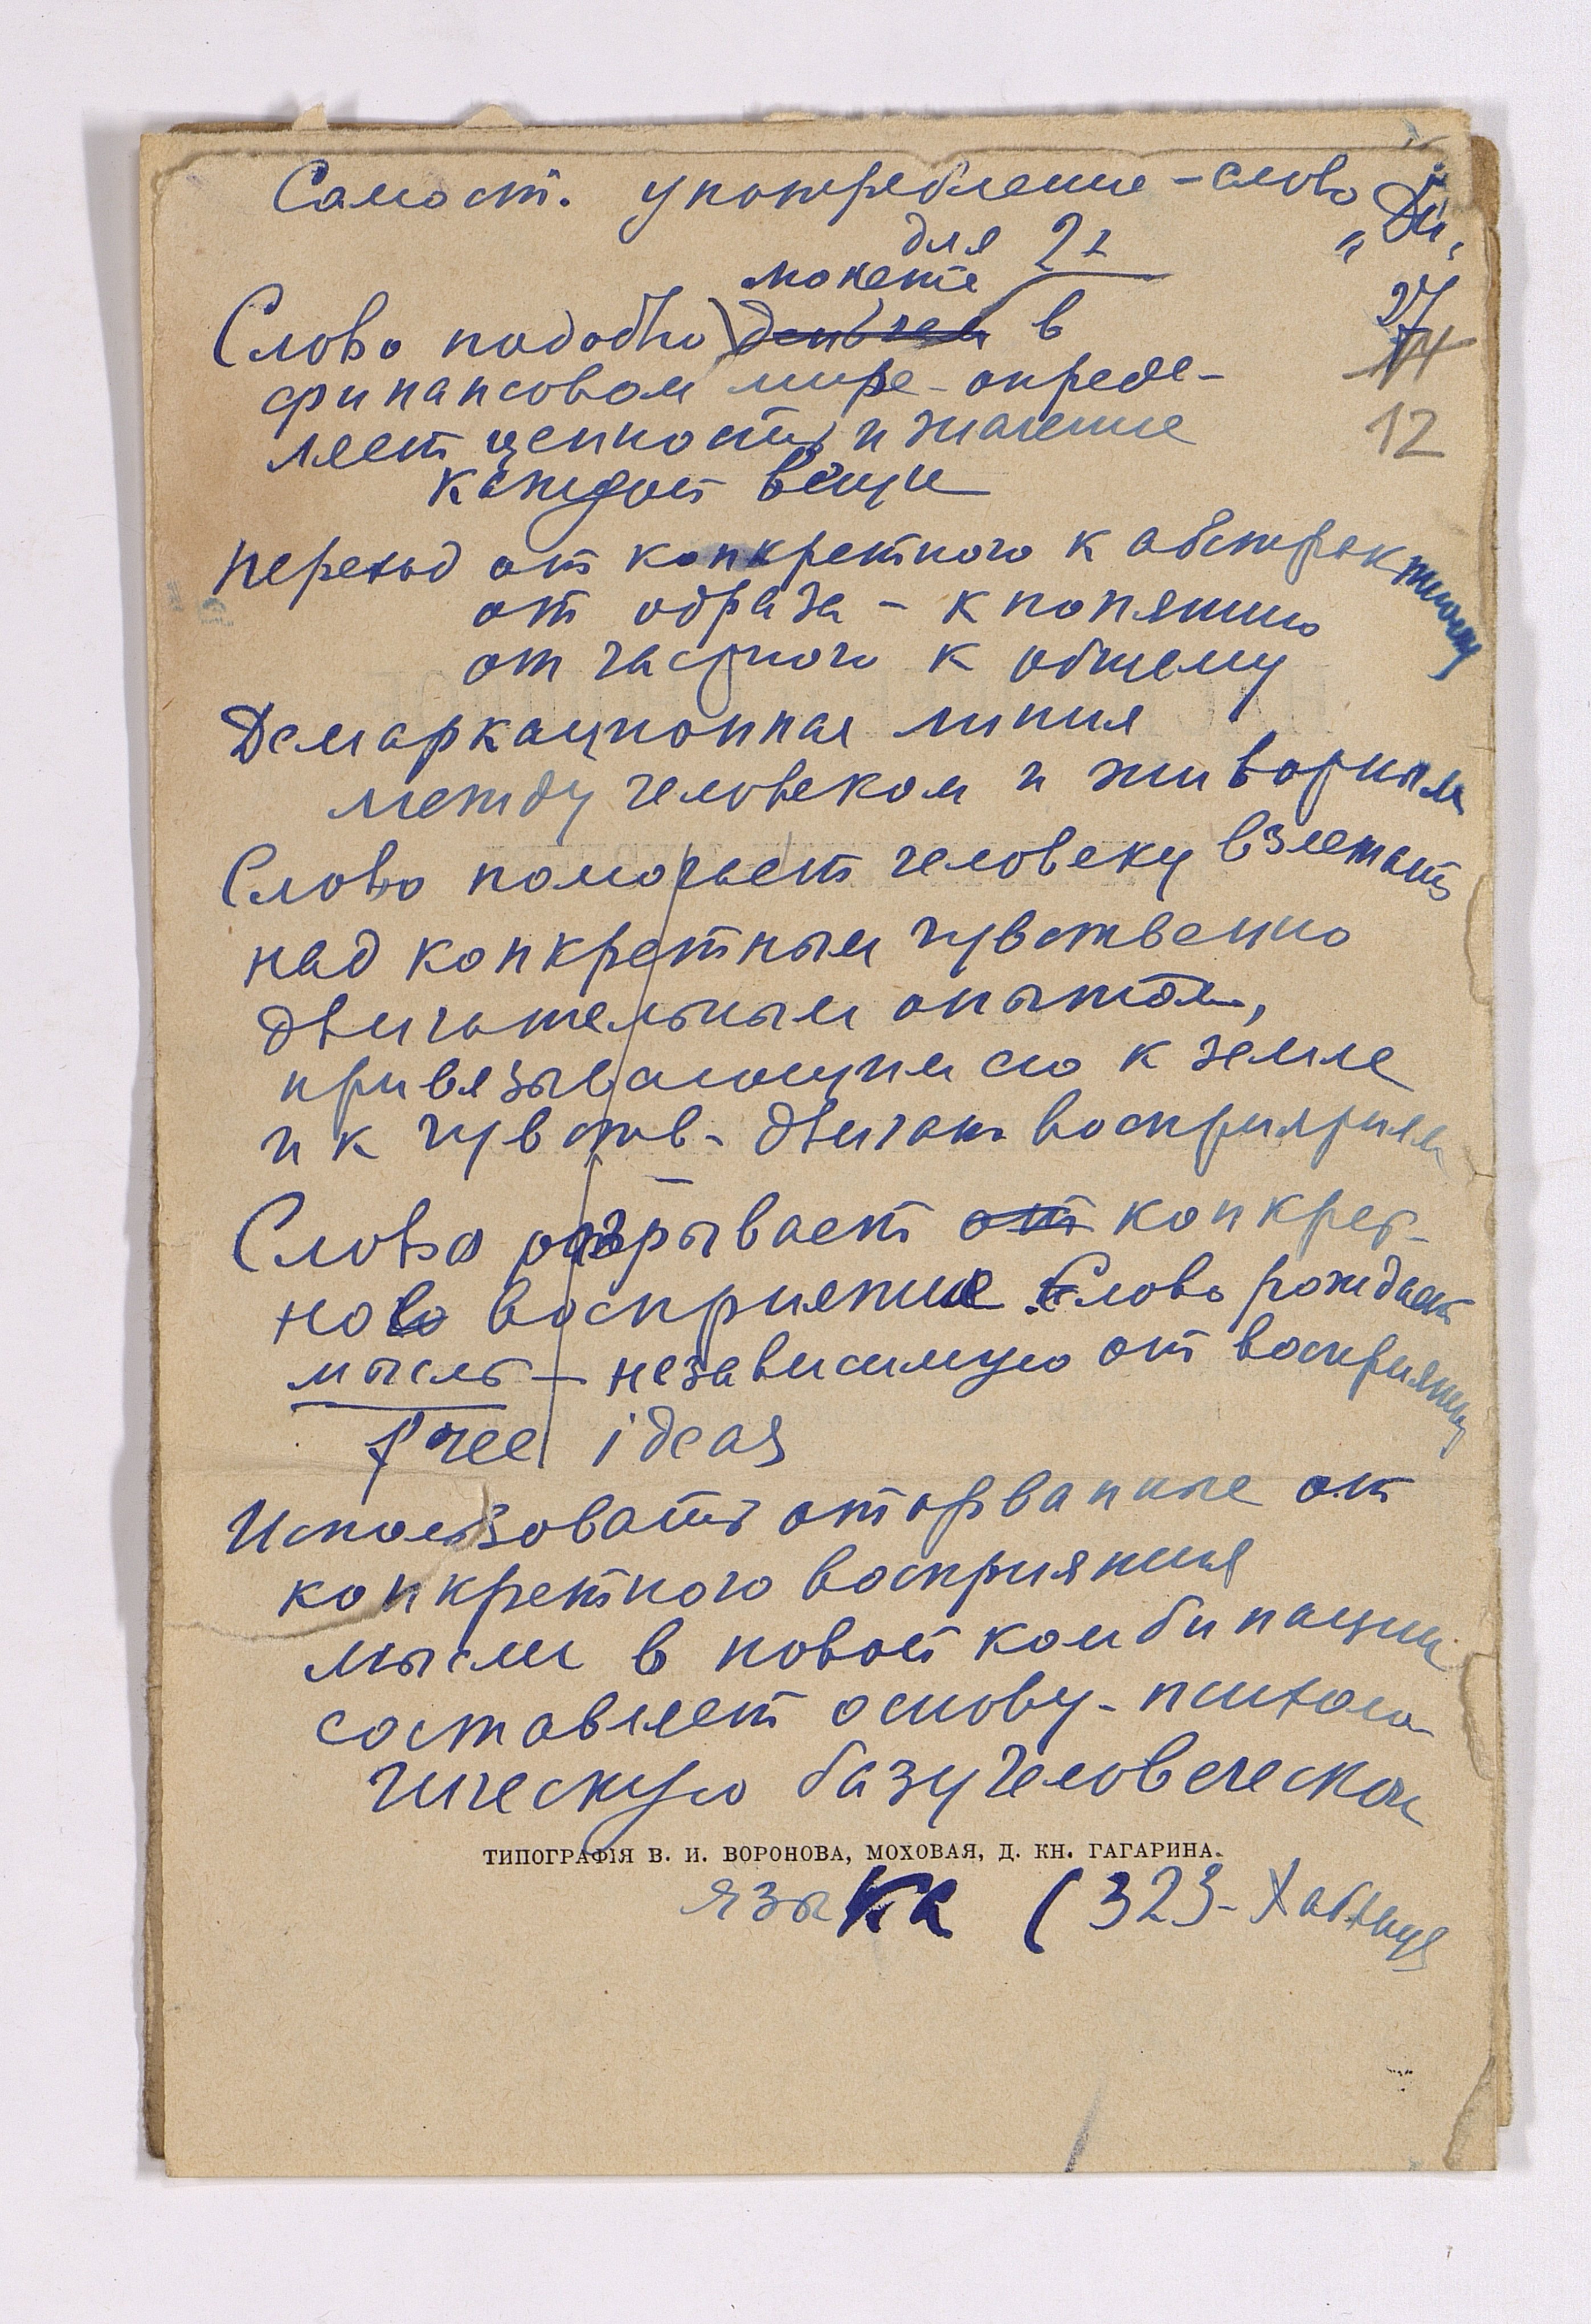 Самост. употребление – слово
для 2х
монете
Слово подобно деньгам в
27
14
финансовом мире – опреде-
ляет ценность и значение
12
каждой вещи
переход от конкретного к абстрактному
от образа – к понятию
от частного к общему
Демаркационная линия
между человеком и животным
Слово помогает человеку взлетать
над конкретным чувственно
двигательным опытом,
привязывающим его к земле
и к чувств- двигат восприятиям
Слово разрывает от конкрет-
ного восприятие. Слово рождает
мысль – независимую от восприятия
free ideas
Использовать оторванные от
конкретного восприятия
мысли в новой комбинации
составляет основу – психоло
гическую базу человеческой
ТИПОГРАФІЯ В. И. ВОРОНОВА, МОХОВАЯ, Д. КН. ГАГАРИНА.
языка (323 –